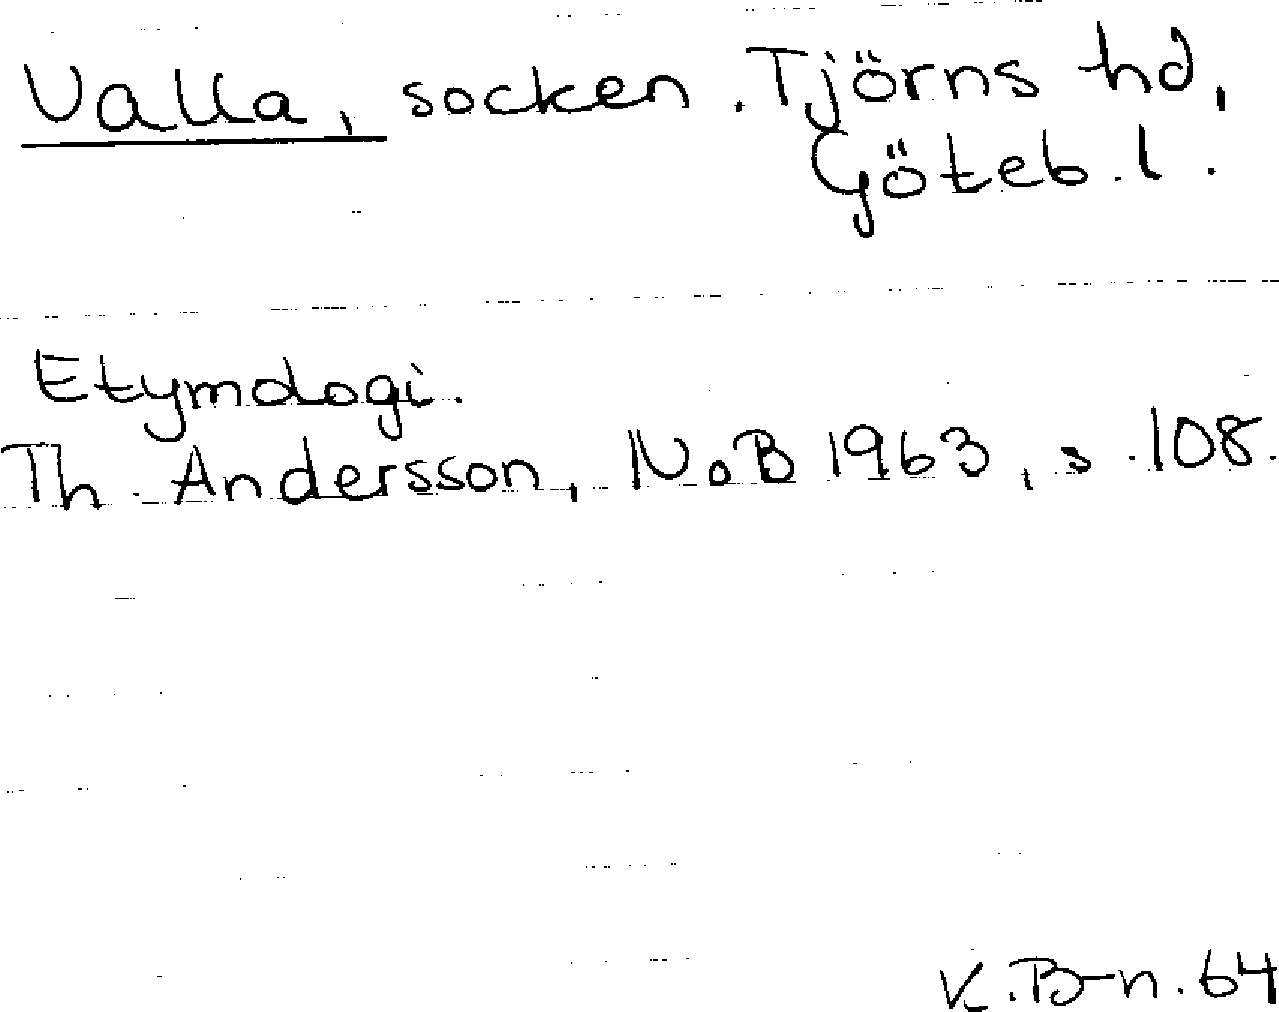 Valla, socken. Tjörns hd,
Göteb. l.
Etymologi.
Th. Andersson, NoB 1963, s. 108.
K. B-n. 64